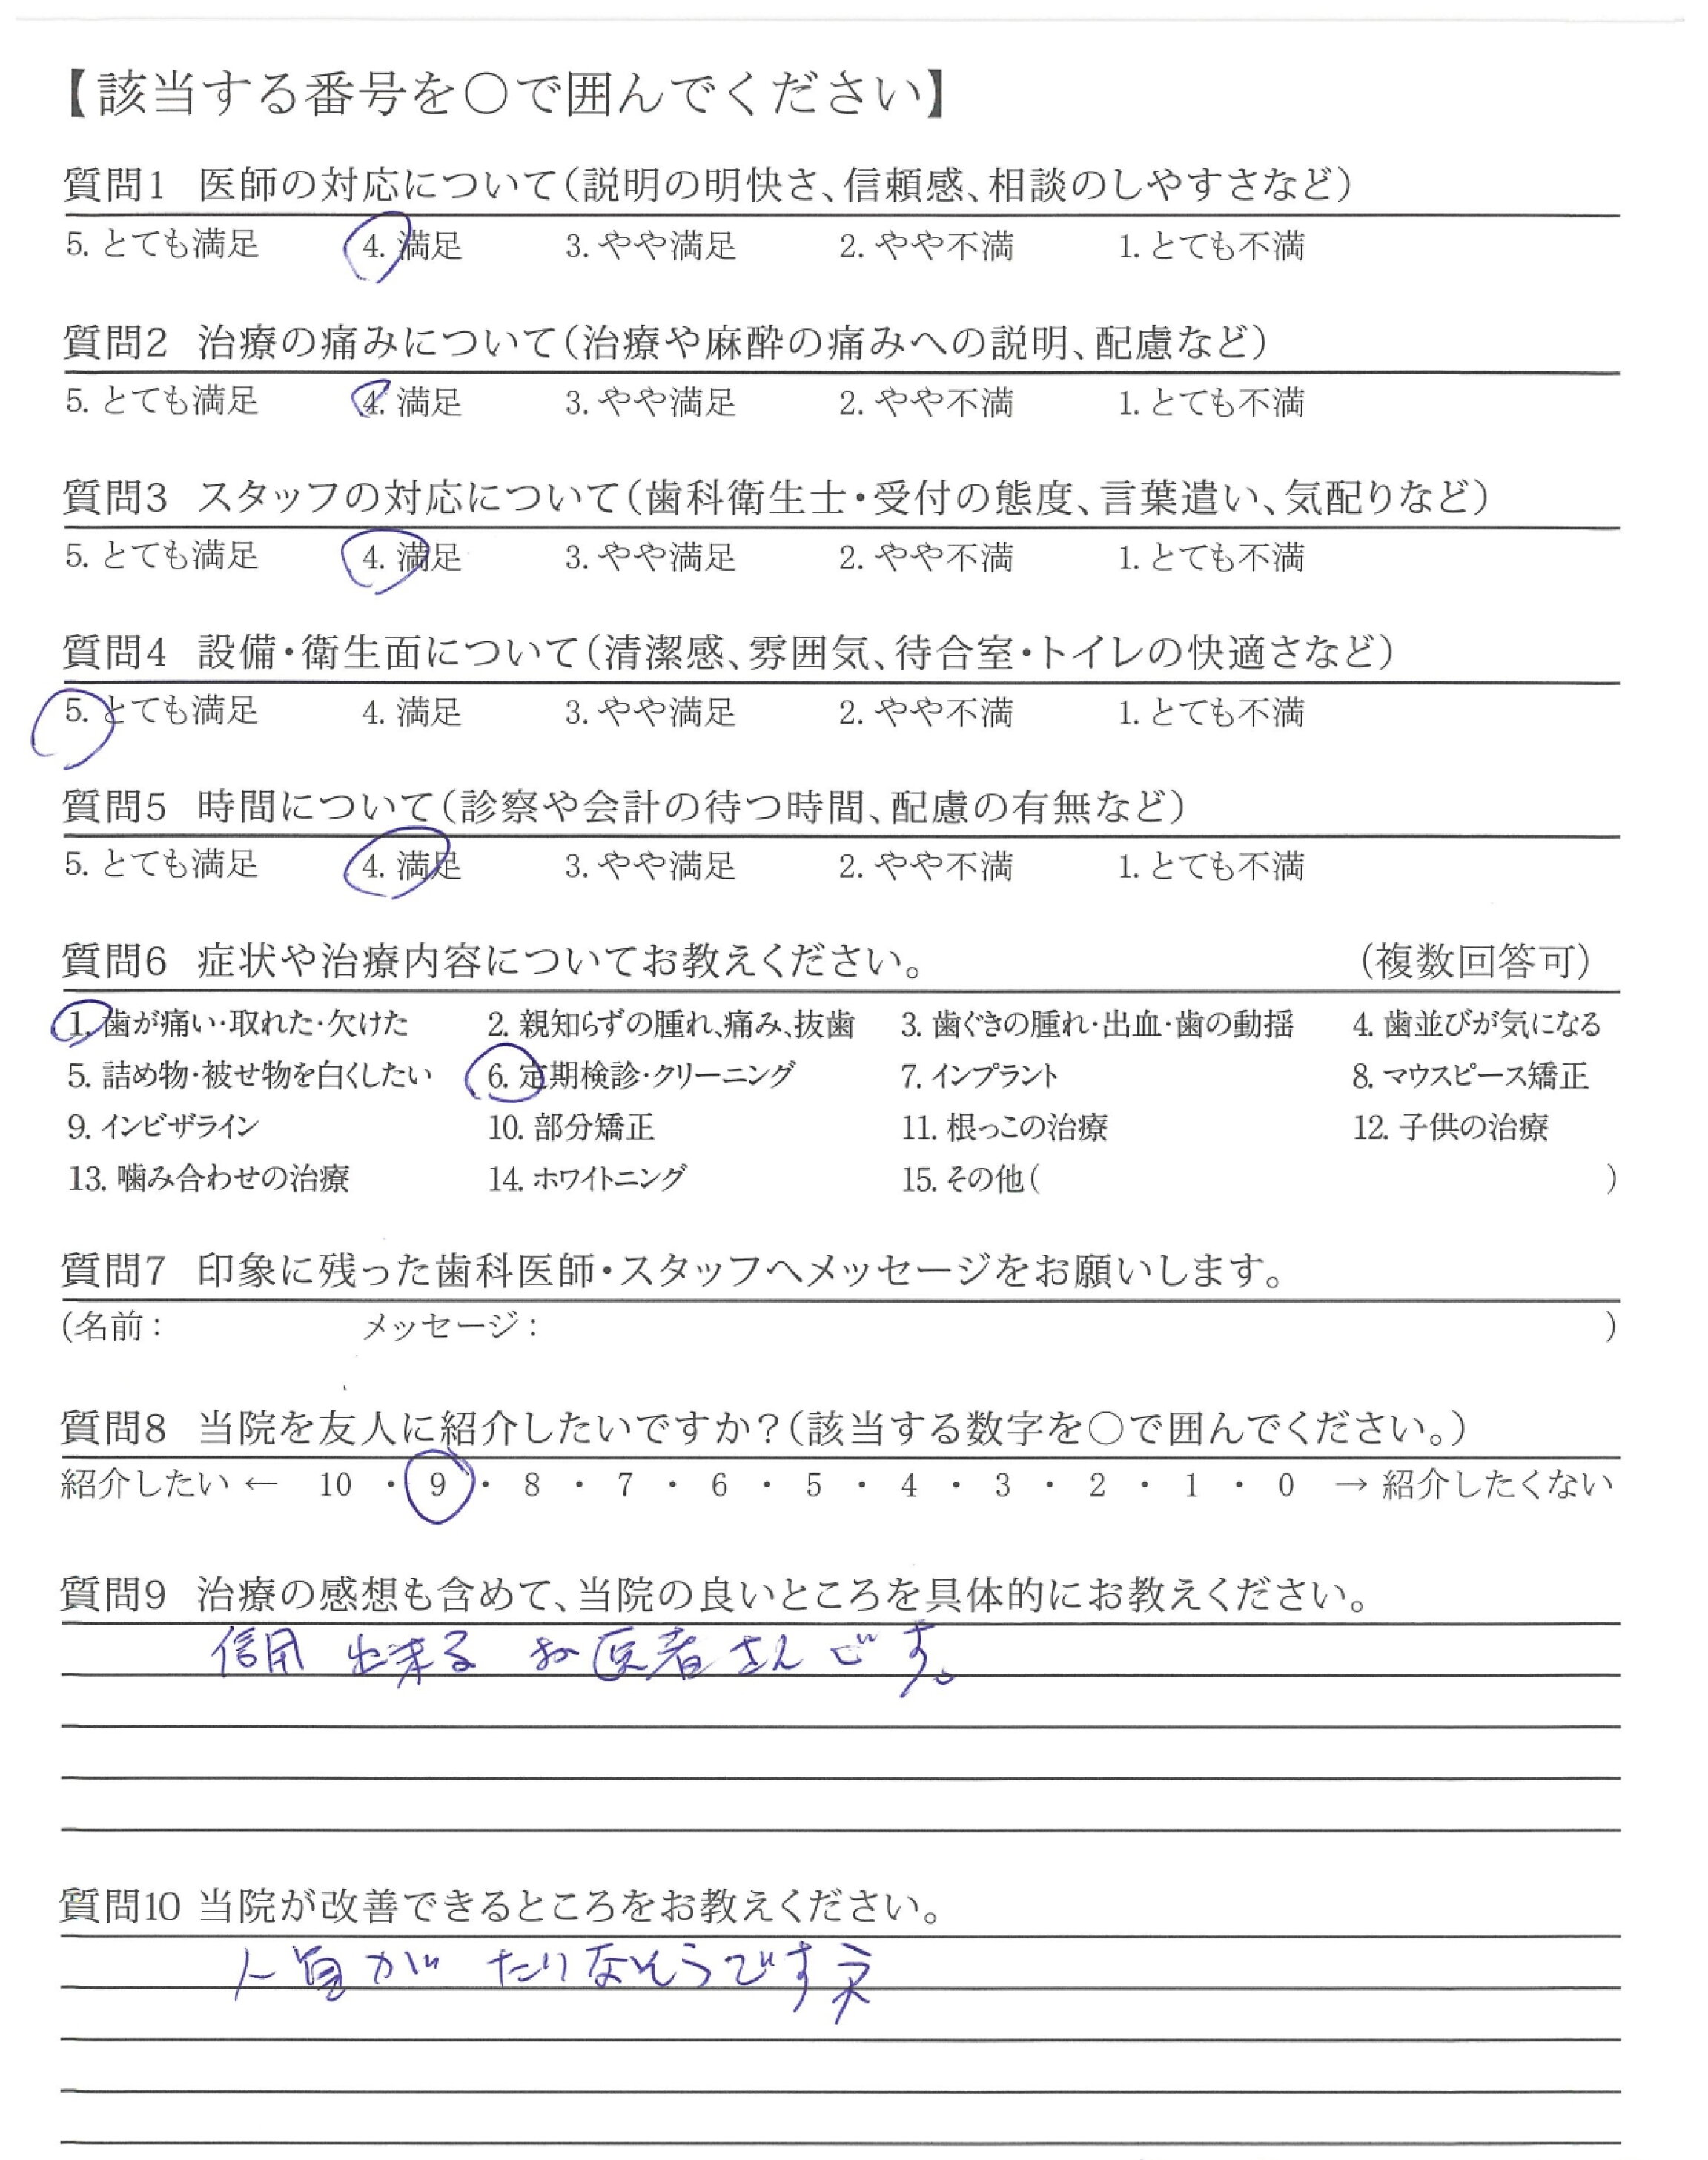 【該当する番号を○で囲んでください】
質問1 医師の対応について(説明の明快さ、信頼感、相談のしやすさなど)
5. とても満足 4. 満足 3. やや満足 2. やや不満 1. とても不満
質問2 治療の痛みについて(治療や麻酔の痛みへの説明、配慮など)
5. とても満足 4. 満足 3. やや満足 2. やや不満 1. とても不満
質問3 スタッフの対応について(歯科衛生士・受付の態度、言葉遣い、気配りなど)
5. とても満足 4. 満足 3. やや満足 2. やや不満 1. とても不満
質問4 設備・衛生面について(清潔感、雰囲気、待合室・トイレの快適さなど)
5. とても満足 4. 満足 3. やや満足 2. やや不満 1. とても不満
質問5 時間について(診察や会計の待つ時間、配慮の有無など)
5. とても満足 4. 満足 3. やや満足 2. やや不満 1. とても不満
質問6 症状や治療内容についてお教えください。 (複数回答可)
1. 歯が痛い・取れた・欠けた 2. 親知らずの腫れ、痛み、抜歯 3. 歯ぐきの腫れ・出血・歯の動揺 4. 歯並びが気になる
5. 詰め物・被せ物を白くしたい 6. 定期検診・クリーニング 7. インプラント 8. マウスピース矯正
9. インビザライン 10. 部分矯正 11. 根っこの治療 12. 子供の治療
13. 噛み合わせの治療 14. ホワイトニング 15. その他( )
質問7 印象に残った歯科医師・スタッフへメッセージをお願いします。
(名前: メッセージ: )
質問8 当院を友人に紹介したいですか?(該当する数字を○で囲んでください。)
紹介したい ← 10 ・ 9 ・ 8 ・ 7 ・ 6 ・ 5 ・ 4 ・ 3 ・ 2 ・ 1 ・ 0 → 紹介したくない
質問9 治療の感想も含めて、当院の良いところを具体的にお教えください。
信用 出来る お医者さんです。
質問10 当院が改善できるところをお教えください。
人員が たりなそうですネ